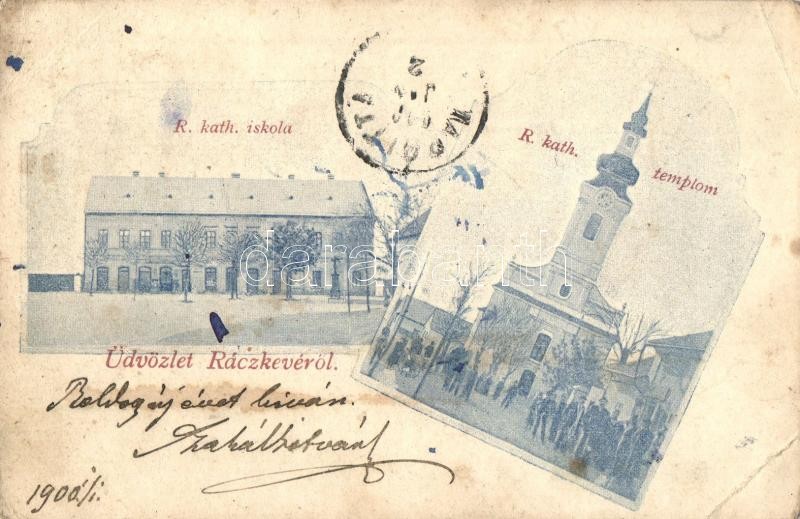 R. kath. iskola
R. kath. templom
Üdvözlet Ráczkevéről.
Boldog új évet kiván.
Szakáll István
1900 I/1.
darabanth